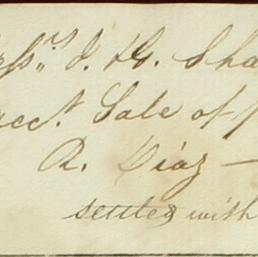 J. G. Sha
acc.t Sale of
R. Diaz —
settled with